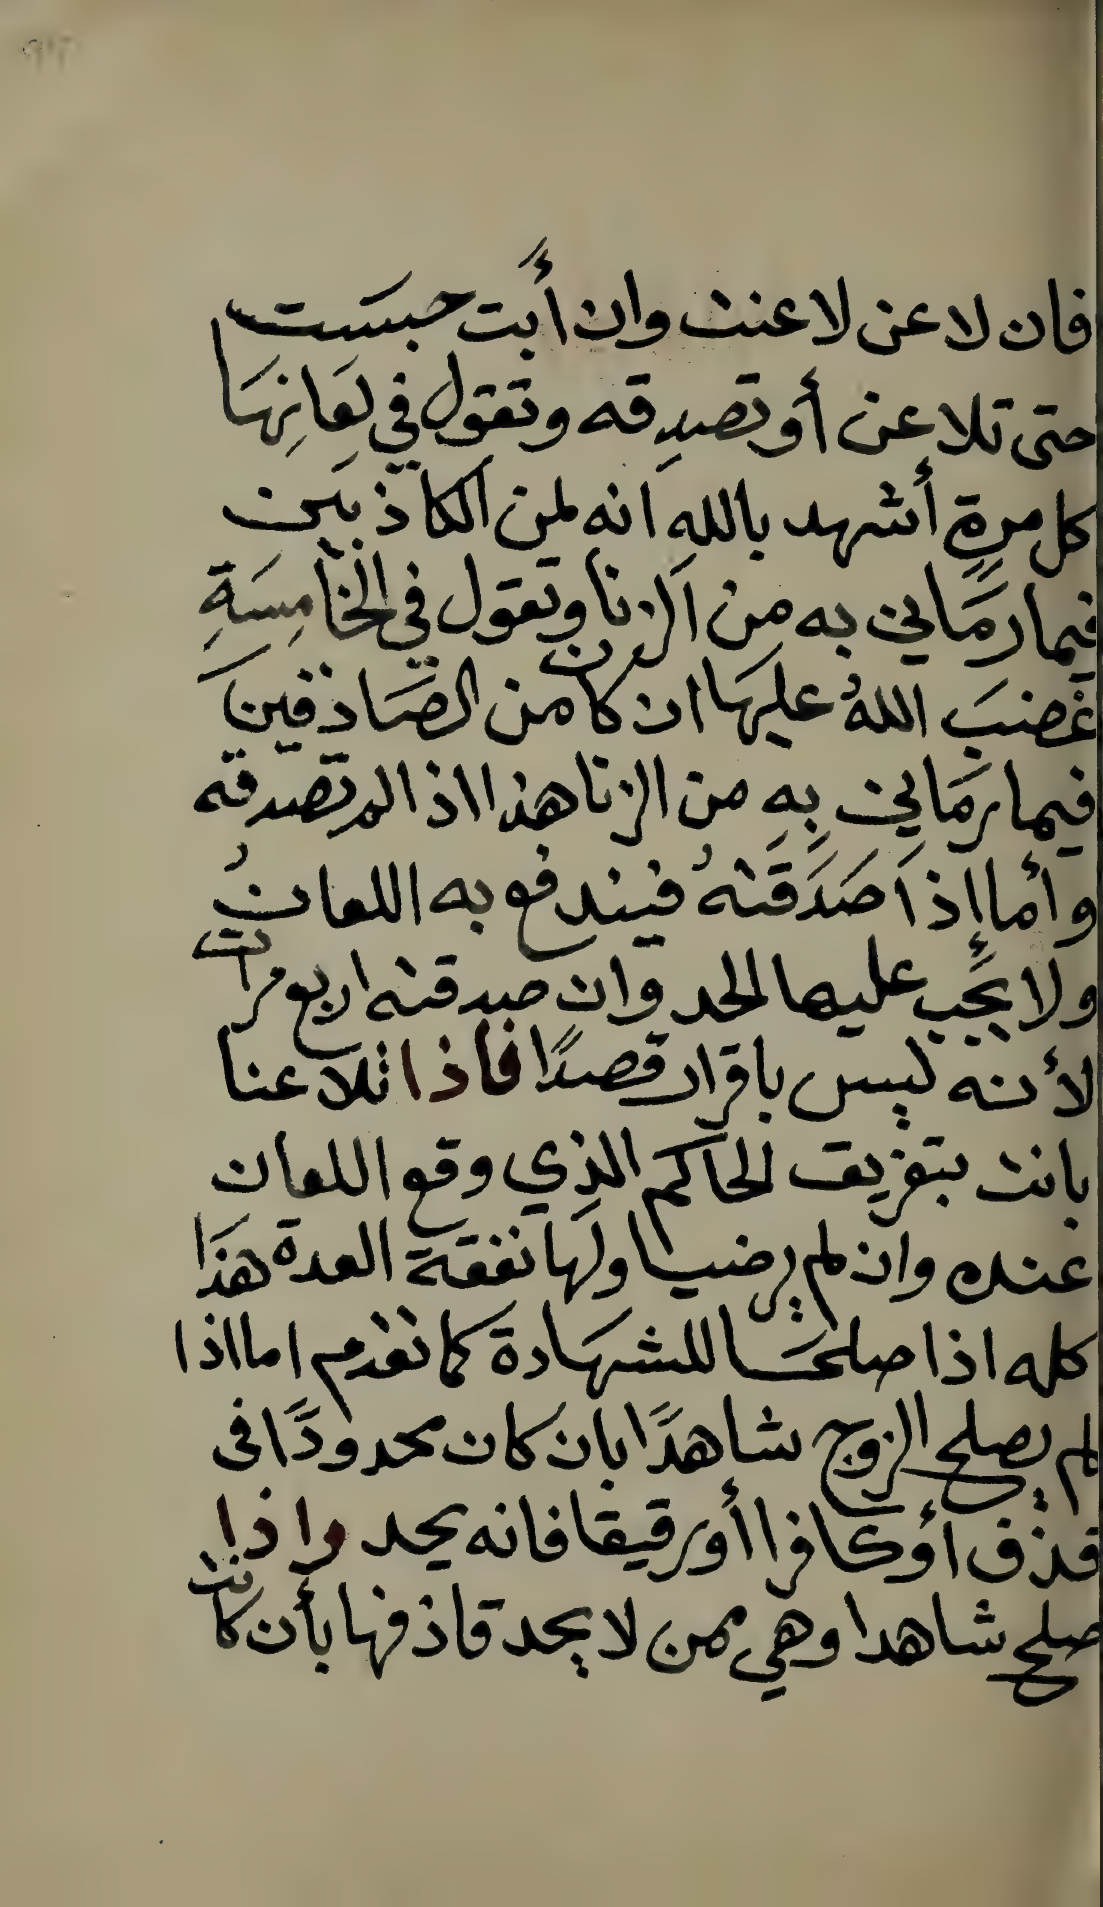 فان لاعن لاعنت وان أَبت حبسَت
حتى تلاعن أو تصدِقه وتقول في لعَانِهَا
كل مرةٍ أشهد باللهِ انه لمن الكاذبَين
فيما رمَاني به من الزنا وتقول في الخامِسَةِ
غضبَ اللهُ عليهَا ان كان من الصَادقينَ
فيما رمَاني بِهِ من الزنا هذا اذا لم تصدقه
وأما إذَا صَدَقَتهُ فيندفع به اللعانُ
ولا يجَب عليها الحد وان صدقته اربع مرات
لأنه ليس باقرار قصدًا فاذا تلاعنا
بانت بتفريق الحاكم الذي وقع اللعان
عنده وان لم يرضيا ولهَا نفقة العدة هذَا
كله اذا صلحَا للشهَادة كما تقدم اما اذا
لم يصلح الزوج شاهدًا بان كان محدودًا فى
قذف أو كافرا أو رقيقا فانه يحد واذا
صلح شاهدا وهي ممن لا يحد قاذفها بأن كانت